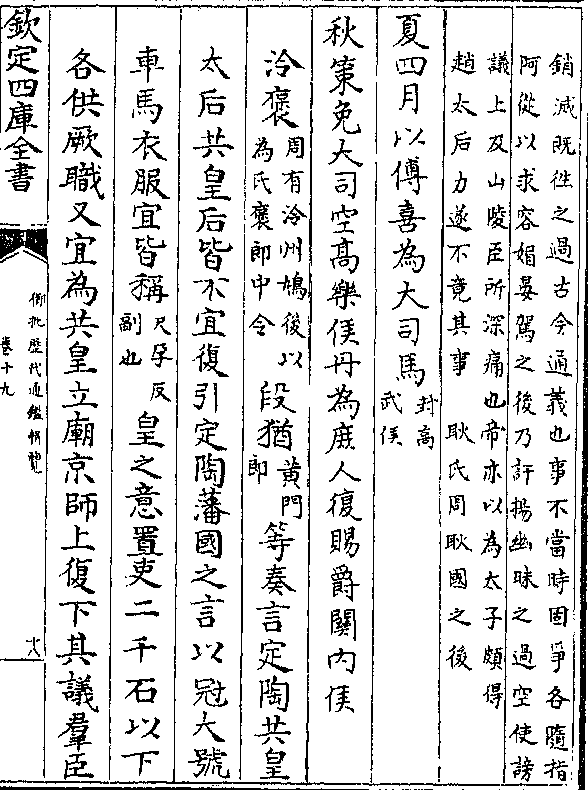 銷滅既往之過古今通義也事不當時固爭各隨指
阿從以求容媚晏駕之後乃訐揚幽昧之過空使謗
議上及山陵臣所深痛也帝亦以為太子頗得
趙太后力遂不竟其事　耿氏周耿國之後
夏四月以傅喜為大司馬封高
武侯
秋策免大司空高樂侯丹為庶人復賜爵關內侯
泠褒周有泠州鳩後以
為氏褒郎中令段猶黃門
郎等奏言定陶共皇
太后共皇后皆不宜復引定陶藩國之言以冠大號
車馬衣服宜皆稱尺孕反
副也皇之意置吏二千石以下
各供厥職又宜為共皇立廟京師上復下其議羣臣
欽定四庫全書
御批歷代通鑑輯覽
卷十九
十八